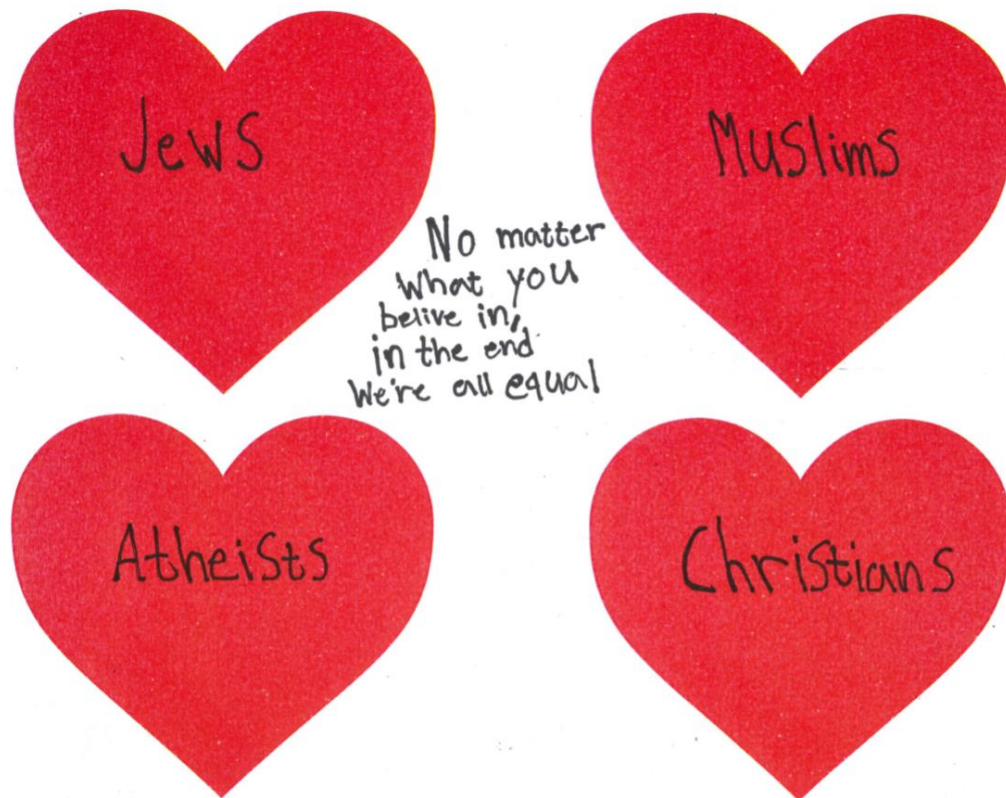 Jews
Muslims
No matter
What you
belive in,
in the end
We're all equal
Atheists
Christians